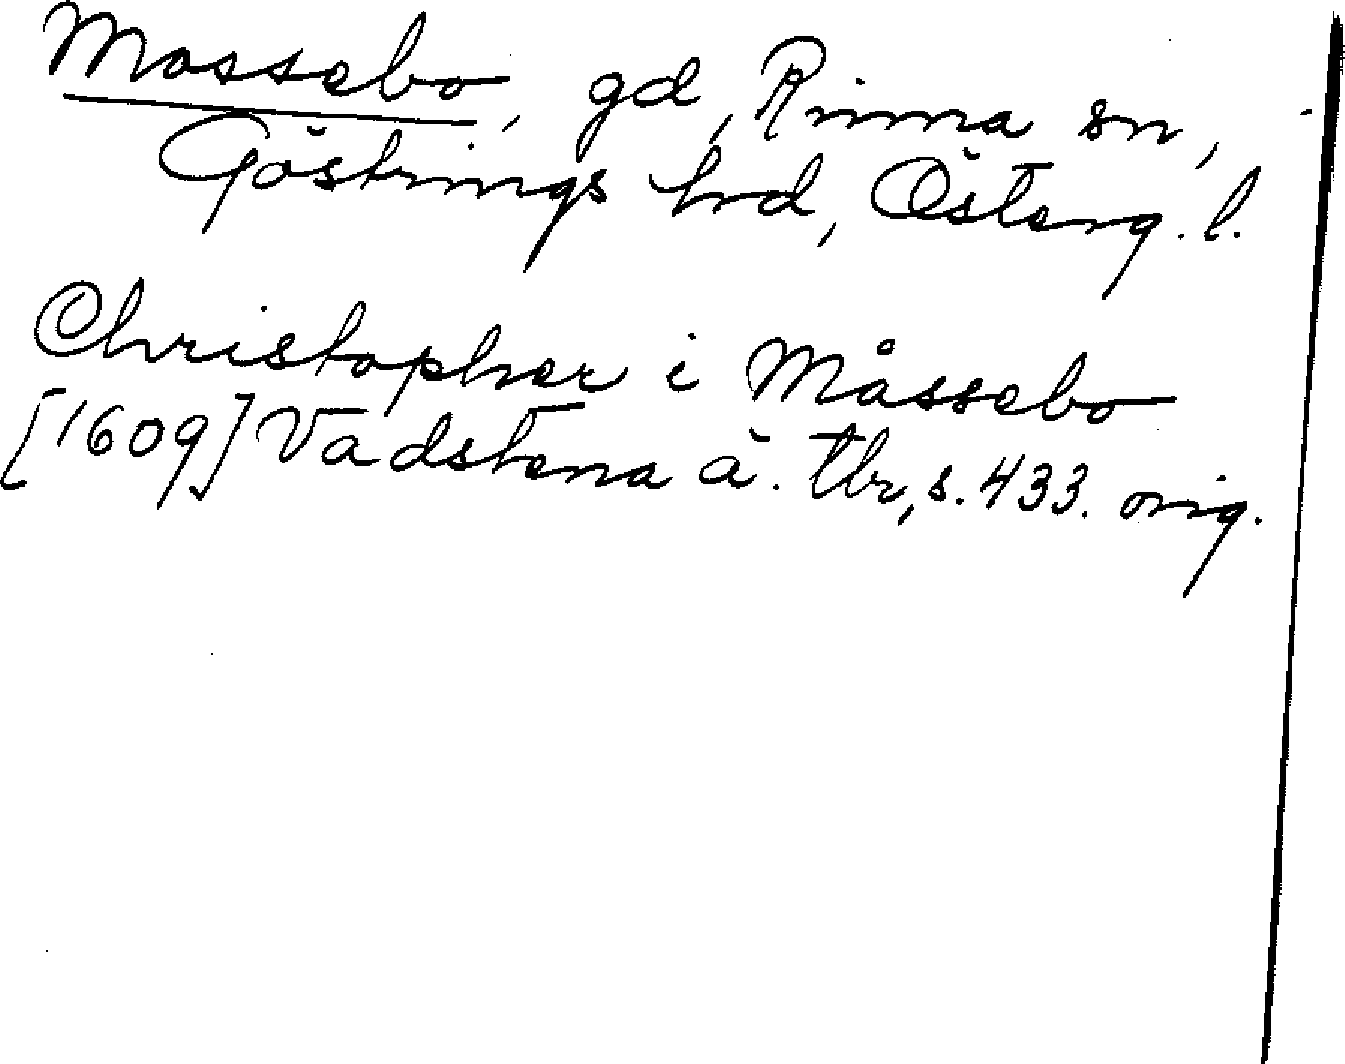 Mossebo, gd, Rinna sn,
Göstrings hrd, Österg. l.
Christopher i Måssebo
[1609] Vadstena ä. tbr, s. 433. orig.